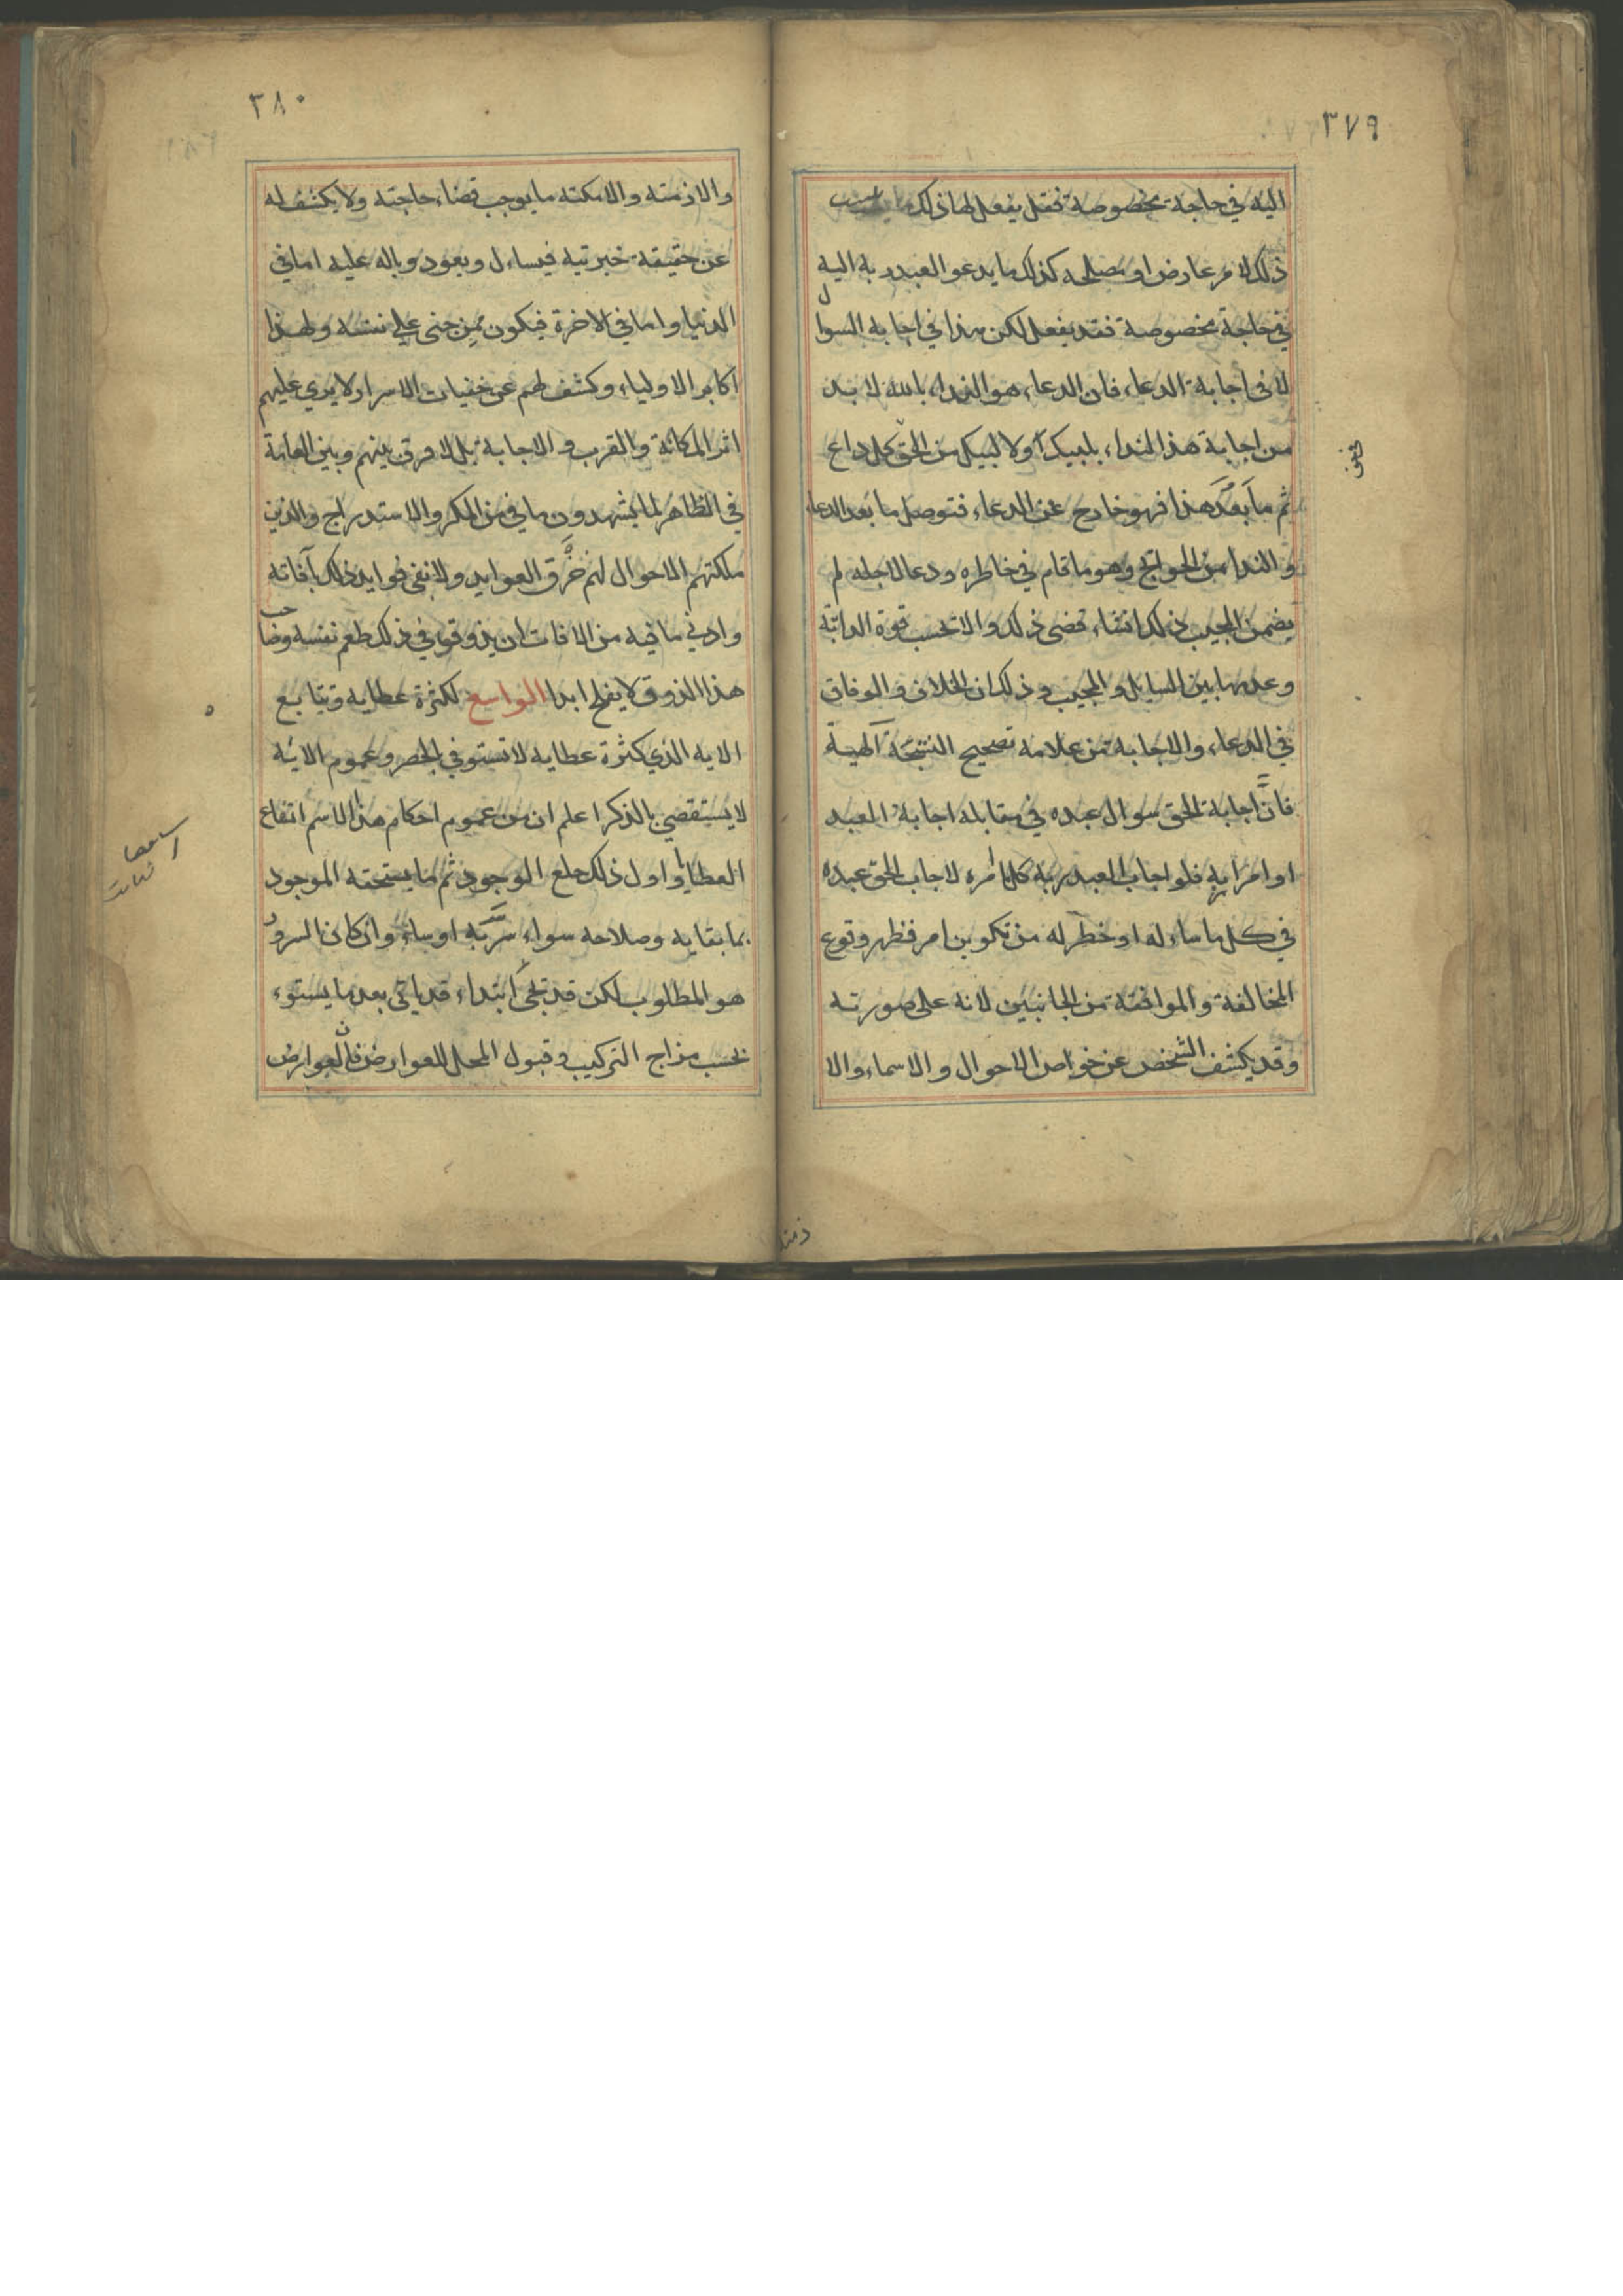 ٣٧٩
اليه في حاجة مخصوصة فقد يفعل لها ذلك
ذلك لامر عارض او مصلحه كذلك ما يدعو العبد ربه اليه
في حاجة مخصوصة فقد يفعل لكن هذا في اجابه السوال
لا في اجابة الدعاء فان الدعاء هو النداء بالله لا بد
من اجابة هذا النداء بلبيك اولا لبيك من الحق كل داع
ثم ما بعد هذا فهو خارج عن الدعاء فتوصل ما بعد الدعاء
و الندا من الحوائج وهو ما قام في خاطره ودعا لاجله لم
يضمن المجيب ذلك ان شاء قضى ذلك والا تحسب قوة الرابتة
وعدمها بين السايل و المجيب و ذلك ان الخلاف و الوفاق
في الدعاء والاجابة من علامه تصحيح النتيجة الهية
فان اجابة الحق سوال عبده في مقابله اجابة العبد
اوامر ربه فلو اجاب العبد ربه كل امره لاجاب الحق عبده
في كل ما ساء له او خطر له من تكوين امر فظهر وقوع
المخالفة و الموافقة من الجانبين لانه على صورته
وقد يكشف الشخص عن خواص الاحوال و الاسماء والا
٣٨٠
والازمنه والامكنه ما يوجب قضاء حاجته ولا يكشف له
عن حقيقة خبريته فيساءل ويعود وباله عليه اما في
الدنيا و اما في الاخرة فيكون ممن جنى على نفسه ولهذا
اكابر الاولياء وكشف لهم عن خفيات الاسرار لا يري عليهم
اثر المكانة و القرب و الاجابة بل لا فرق بينهم وبين العامة
في الظاهر لما يشهدون ما في من المكر والاستدراج والذين
ملكتهم الاحوال لهم خرق العوايد ولا تفي فوايد ذلك بآفاته
وادني ما فيه من الافات ان يذوقو في ذلك طعم نفسه وصاحب
هذا الذوق لا يفلح ابدا الواسع لكثرة عطايه وتتابع
الايه الذي كثرة عطايه لا تستوفي بالحصر وعموم الائه
لا يستقصي بالذكر اعلم ان من عموم احكام هذا الاسم اتفاع
العطايا و اول ذلك خلع الوجود ثم ما يستحقه الموجود
بما بقايه وصلاحه سواء سر به او ساء وان كان السرور
هو المطلوب لكن قد تجي ابتداء قد ياتي بعد ما يستوء
بحسب مزاج التركيب و قبول المحل للعوارض فان العوارض